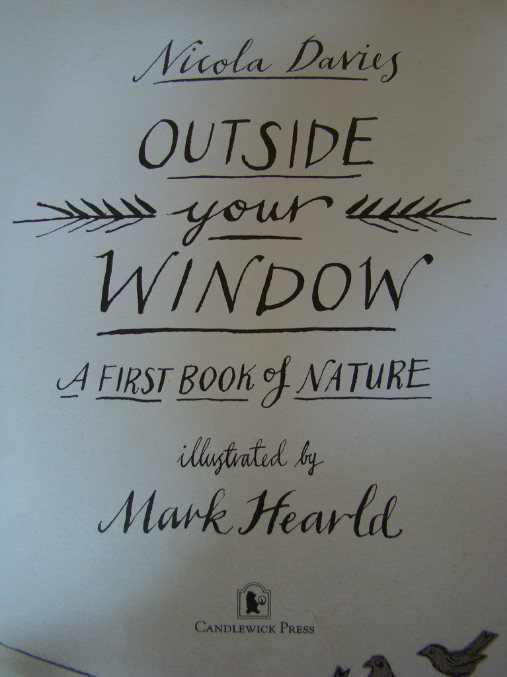 Nicola Davies
OUTSIDE
your
WINDOW
A FIRST BOOK of NATURE
illustrated by
Mark Hearld
CANDLEWICK PRESS